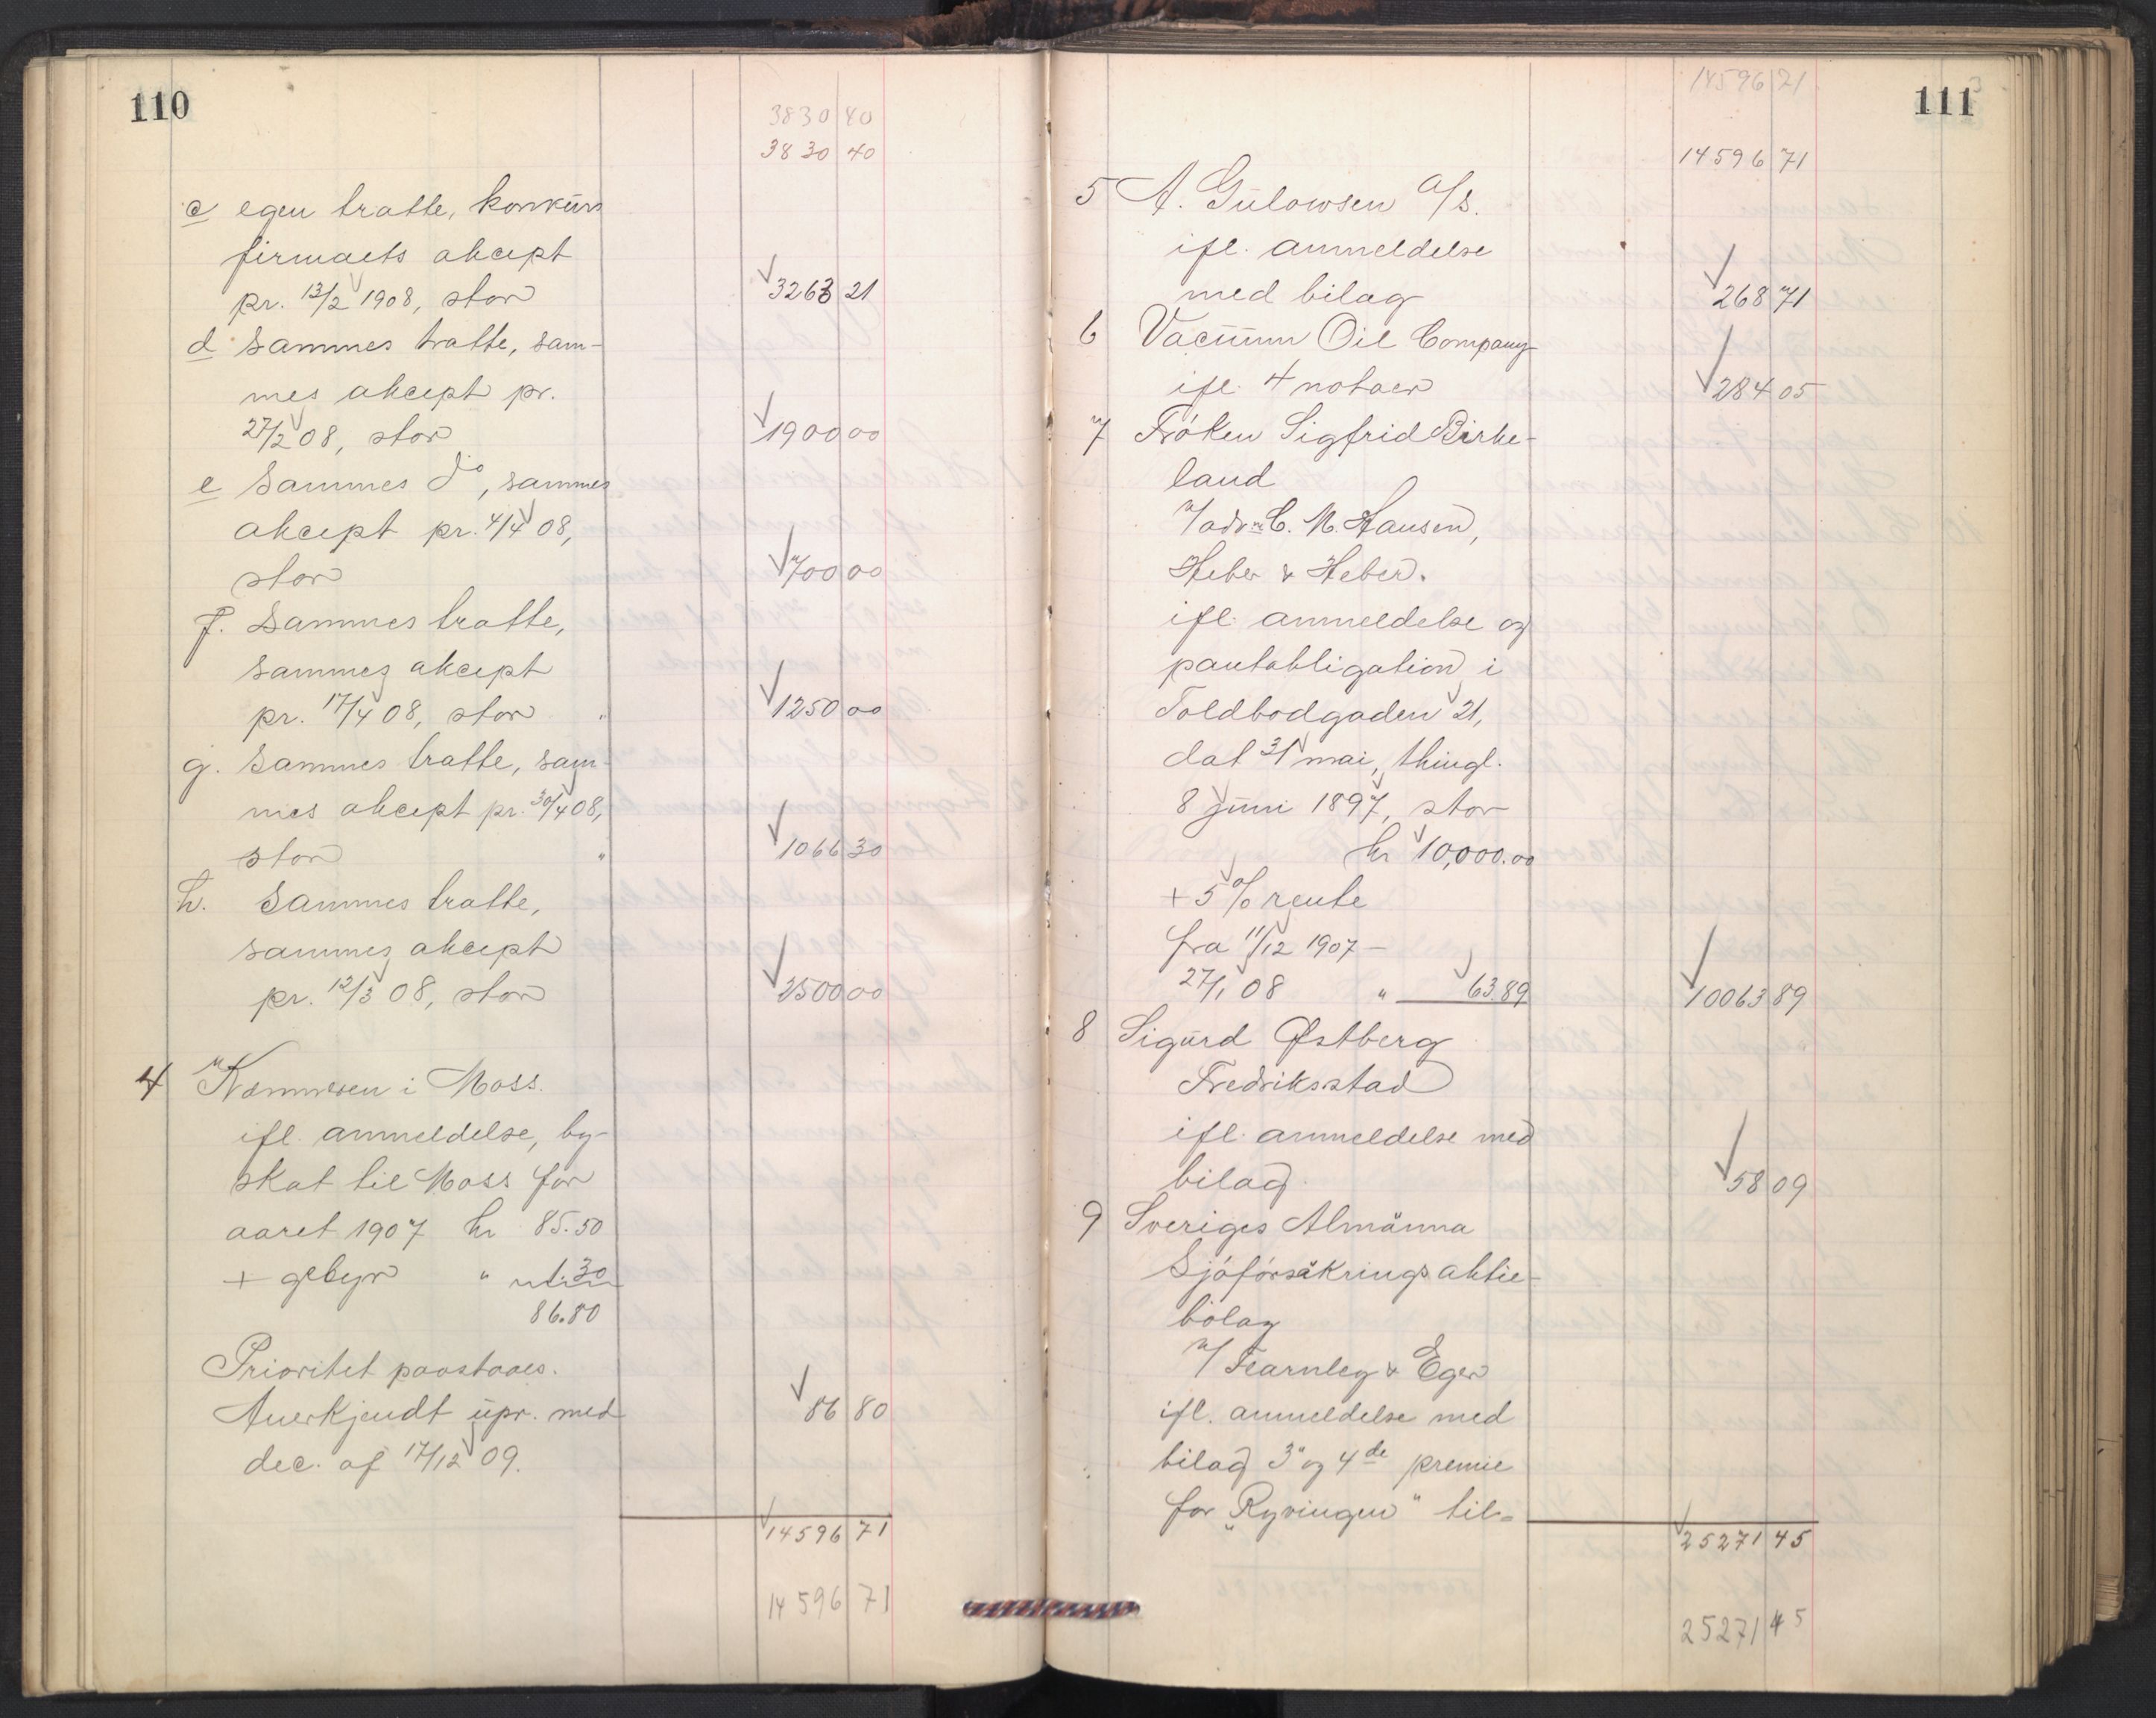 110
3830 40
3830 40
c egen tratte, konkurs
firmaets akcept
pr. 13/2 1908, stor 3263 21
d Sammes tratte, sam-
mes akcept pr.
27/2 08, stor 1900 00
e Sammes do, sammes
akcept pr. 4/4 08,
stor 700 00
f. Sammes tratte,
sammes akcept
pr. 17/4 08, stor " 1250 00
g. Sammes tratte, sam-
mes akcept pr. 30/4 08,
stor " 1066 30
h. Sammes tratte,
sammes akcept
pr. 12/3 08, stor 2500 00
4 Kæmneren i Moss.
ifl. anmeldelse, by-
skat til Moss for
aaret 1907 kr 85.50
+ gebyr " 1.30
86.80
Prioritet paastaaes.
Anerkjendt upr. med 86 80
dec. af 17/12 09.
14596 71
14596 71
111
14596 71
14596 71
5 A. Gulowsen A/S.
ifl. anmeldelse
med bilag 268 71
6 Vacuum Oil Company
ifl. 4 notaer 284 05
7 Frøken Sigfrid Birke-
land
v/ adv. C. M. Hansen,
Heber & Heber.
ifl. anmeldelse og
pantobligation i
Toldbodgaden 21,
dat 31 mai, thingl.
8 juni 1897, stor
kr 10,000.00
+ 5 % rente
fra 11/12 1907 –
27/1 08 " 63.89 10063 89
8 Sigurd Østberg
Fredriksstad
ifl. anmeldelse med
bilag. 58 09
9 Sveriges Almänna
Sjöförsäkrings aktie-
bolag
v/ Fearnley & Eger
ifl. anmeldelse med
bilag 3" og 4de premie
for "Ryvingen" til-
25271 45
25271 45